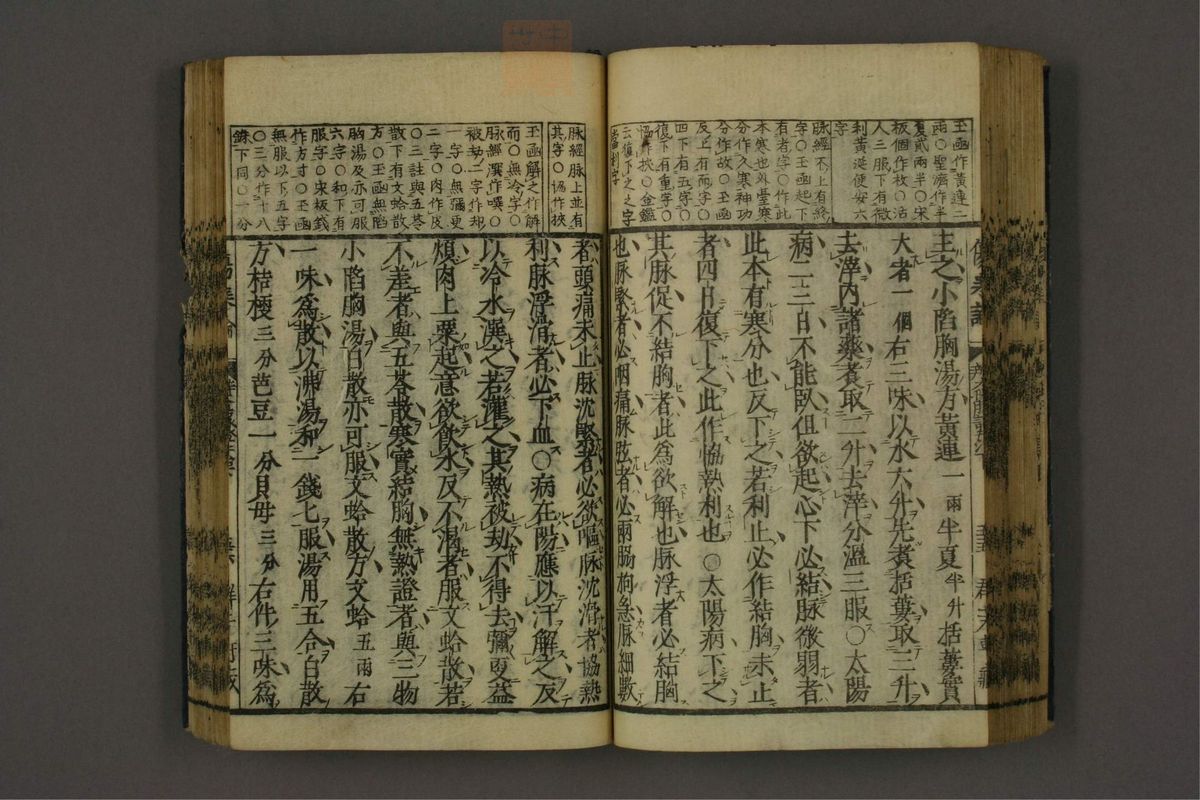 玉函作黃連二
兩○聖濟作半
夏貳兩半○宋
板個作枚○活
人三服下有微
利黃涎便安六
字
脉經不上有終
字○玉函起下
有者字○作此
本寒也外臺寒
分作久寒神功
分作故○玉函
反上有而字○
四下有五字○
復下有重字○
協作挾○金鑑
主之小陷胸湯方黃連一兩半夏半升括蔞實
大者一個右三味以水六升先煑括蔞取三升
去滓內諸藥煑取二升去滓分溫三服○太陽
病二三日不能臥但欲起心下必結脉微弱者
此本有寒分也反下之若利止必作結胸未止
者四日復下之此作協熱利也○太陽病下之
其脉促不結胸者此爲欲解也脉浮者必結胸
也脉緊者必咽痛脉弦者必兩脇拘急脉細數
脉經脉上並有
其字○協作挾
玉函解之作解
而○無冷字○
脉經潠作噀○
被劫二字作却
一字○無彌更
二字○肉作皮
○三註與五苓
散下有文蛤散
方○玉函無陷
胸湯及亦可服
六字○和下有
服字○宋板錢
作方寸○玉函
無服以下五字
○三分作十八
銖下同○一分
者頭痛未止脉沈緊者必欲嘔脉沈滑者協熱
利脉浮滑者必下血○病在陽應以汗解之反
以冷水潠之若灌之其熱被劫不得去彌更益
煩肉上粟起意欲飮水反不渴者服文蛤散若
不差者與五苓散寒實結胸無熱證者與三物
小陷胸湯白散亦可服文蛤散方文蛤五兩右
一味爲散以沸湯和一錢匕服湯用五合白散
方桔梗三分芭豆一分貝母三分右件三味爲